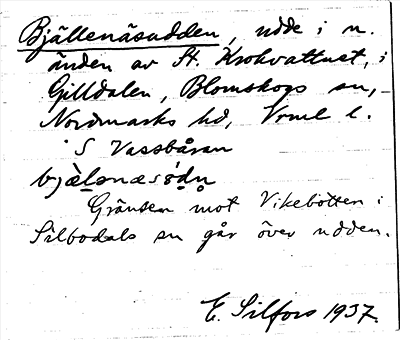 Bjällenäsudden, udde i n.
änden av St. Krokvattnet, i
Gilldalen, Blomskogs sn,
Nordmarks hd, Vrml l.
S Vassbåran
Gränsen mot Vikebotten i
Silbodals sn går över udden.
E. Silfors 1937.